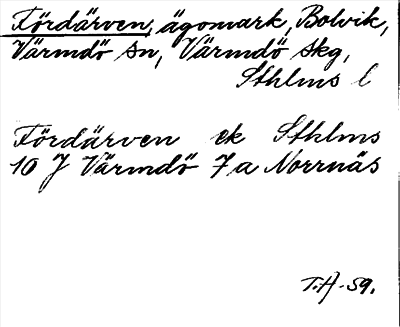 Fördärven, ägomark, Bolvik,
Värmdö sn, Värmdö skg,
Sthlms l
Fördärven ek Sthlms
10 J Värmdö 7a Norrnäs
T.H-59.